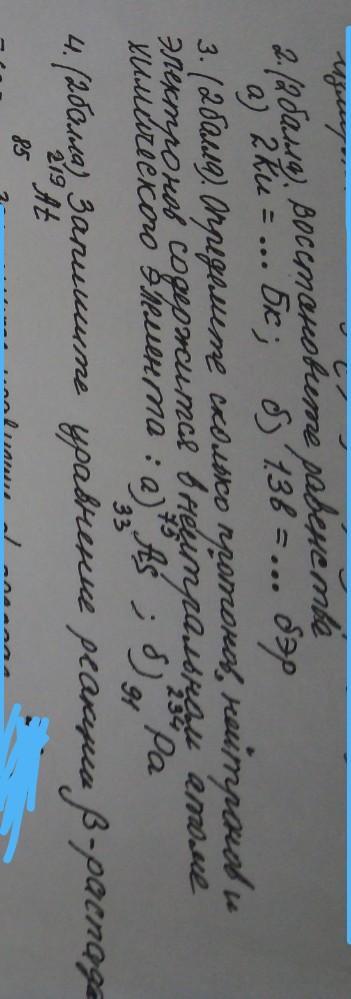 2. (2 балла). Восстановите равенства
а) 2Ки = ... Бк; б) 1Зв = ... бэр
3. (2 балла). Определите сколько протонов, нейтронов и
электронов содержится в нейтральном атоме
химического элемента: а) ⁷⁵₃₃As ; б) ²³⁴₉₁Pa
4. (2 балла) Запишите уравнение реакции β-распада
²¹⁹₈₅At